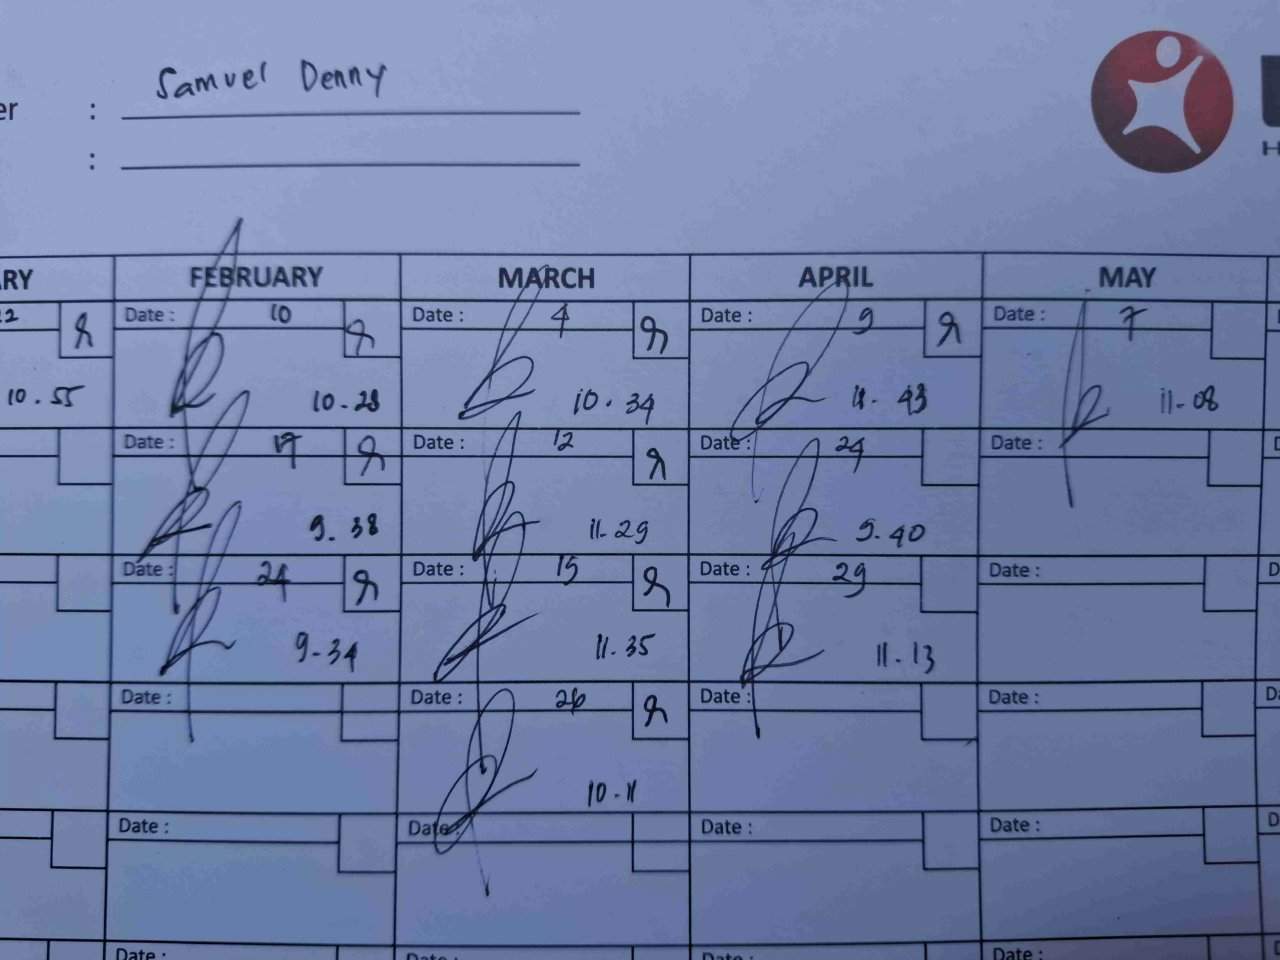 Samuel Denny
er :
:
RY FEBRUARY MARCH APRIL MAY
22 Date : 10 Date : 4 Date : 9 Date : 7
10.55 10-23 10.34 11-43 11-08
Date : 17 Date : 12 Date : 24 Date :
9.38 11-29 9-40
Date : 24 Date : 15 Date : 29 Date : D
9-34 11.35 11-13
Date : Date : 26 Date : Date : Da
10-11
Date : Date : Date : Date : D
Date : Date : Date : Date :